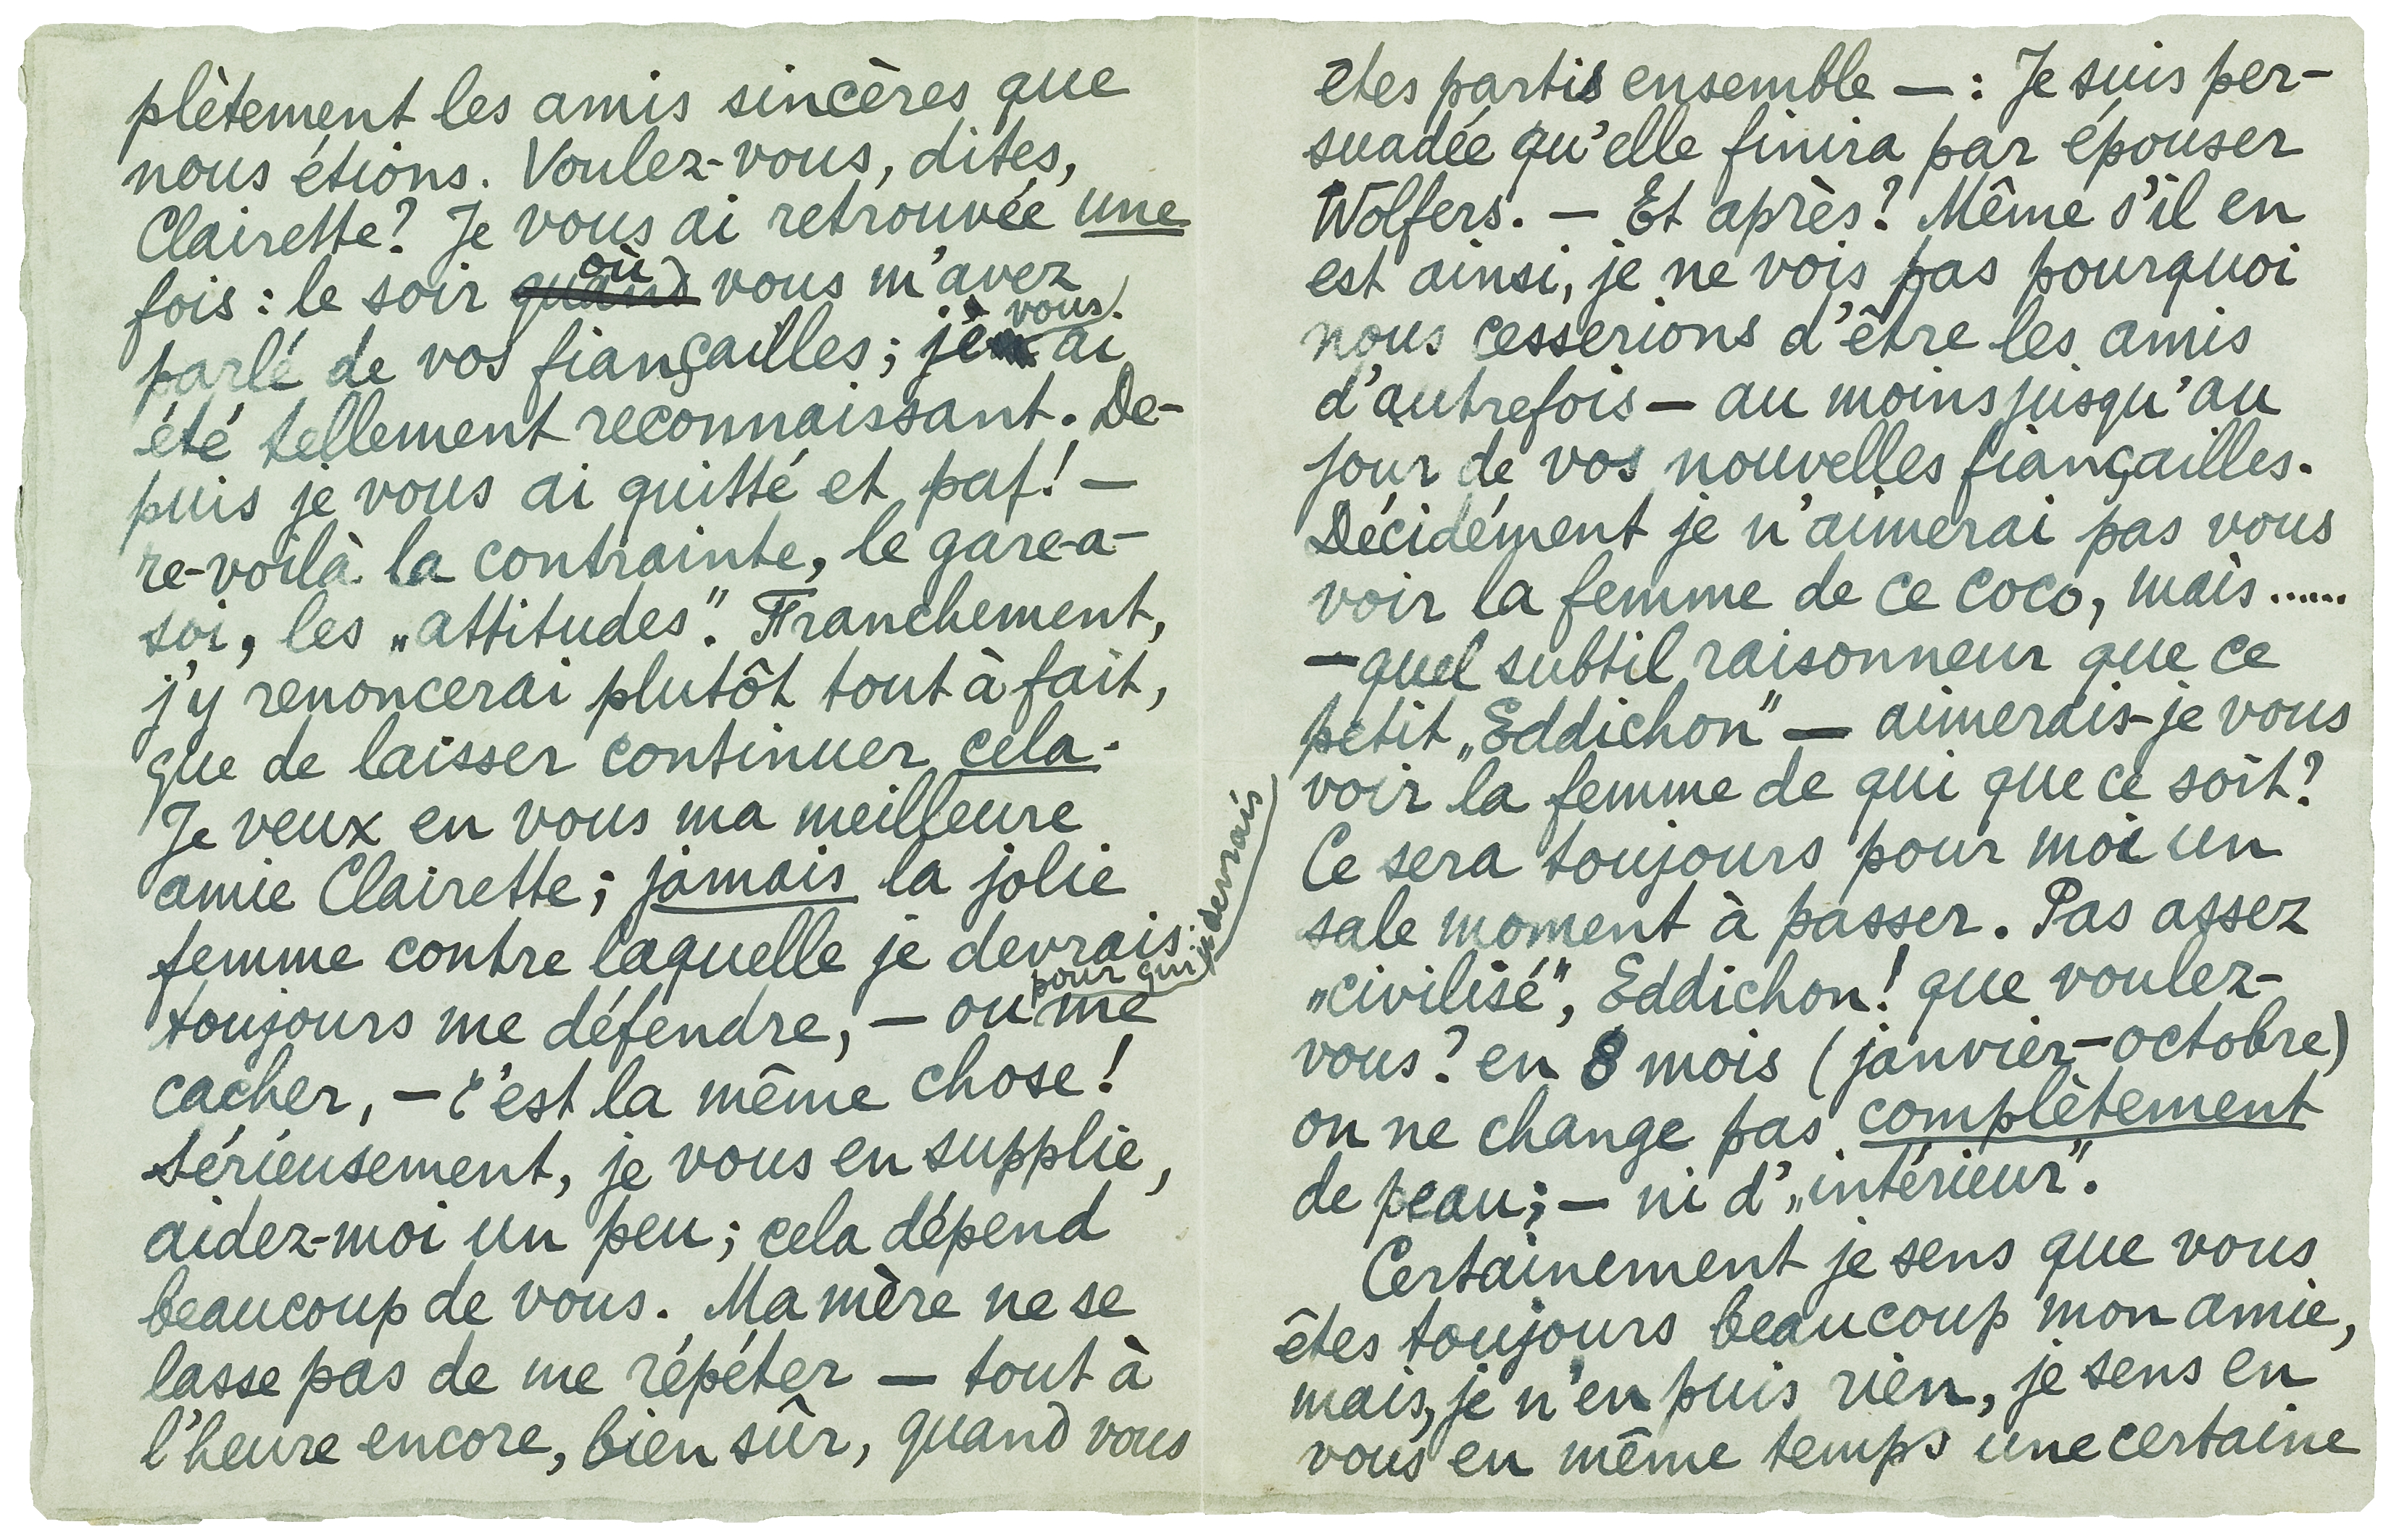 plètement les amis sincères que
nous étions. Voulez-vous, dites,
Clairette? Je vous ai retrouvée une
fois: le soir quand où vous m'avez
parlé de vos fiançailles; je vous ai
été tellement reconnaissant. De-
puis je vous ai quitté et paf! —
re-voilà la contrainte, le gare-a-
soi, les „attitudes". Franchement,
j'y renoncerai plutôt tout à fait,
que de laisser continuer cela.
Je veux en vous ma meilleure
amie Clairette; jamais la jolie
femme contre laquelle je devrais
toujours me défendre, — ou pour qui je devrais me
cacher, — c'est la même chose!
Sérieusement, je vous en supplie,
aidez-moi un peu; cela dépend
beaucoup de vous. Ma mère ne se
lasse pas de me répéter — tout à
l'heure encore, bien sûr, quand vous
etes partis ensemble —: Je suis per-
suadée qu'elle finira par épouser
Wolfers. — Et après? Même s'il en
est ainsi, je ne vois pas pourquoi
nous cesserions d'être les amis
d'autrefois — au moins jusqu'au
jour de vos nouvelles fiançailles.
Décidément je n'aimerai pas vous
voir la femme de ce coco, mais......
— quel subtil raisonneur que ce
petit „Eddichon" — aimerais-je vous
voir la femme de qui que ce soit?
Ce sera toujours pour moi un
sale moment à passer. Pas assez
„civilisé", Eddichon! que voulez-
vous? en 8 mois (janvier-octobre)
on ne change pas complètement
de peau; — ni d'„intérieur".
Certainement je sens que vous
êtes toujours beaucoup mon amie,
mais, je n'en puis rien, je sens en
vous en même temps une certaine